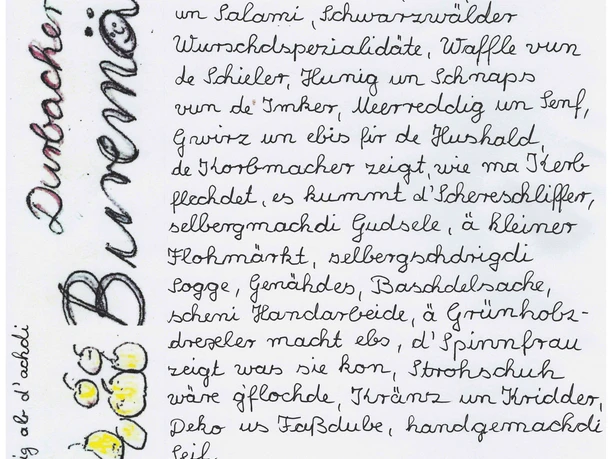 un Salami, Schwarzwälder
Wurschdspezialidäte, Waffle vun
de Schieler, Hunig un Schnaps
vun de Imker, Meerreddig un Senf,
Gwirz un ebis fir de Hushald,
de Korbmacher zeigt, wie ma Kerb
flechdet, es kummt d'Schereschliffer,
selbergmachdi Gudsele, ä kleiner
Flohmärkt, selbergschdrigdi
Sogge, Genähdes, Baschdelsache,
scheni Handarbeide, ä Grünholz-
drexeler macht ebs, d'Spinnfrau
zeigt was sie kon, Strohschuh
wäre g'flochde, Kränz un Kridder,
Deko us Faßdube, handgemachdi
Seif.
Durbacher
Buremä
ig ab d'achdi